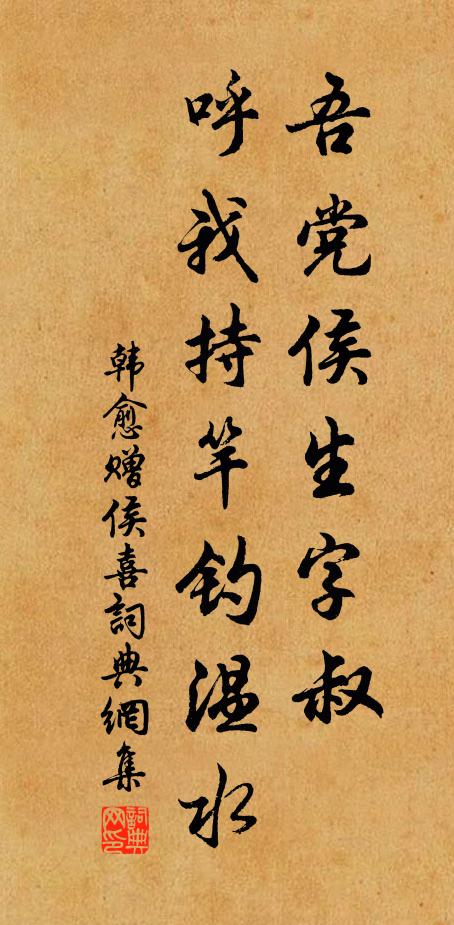 吾党侯生字叔
呼我持竿钓温水
韩愈赠侯喜詞典網集
詞典网印